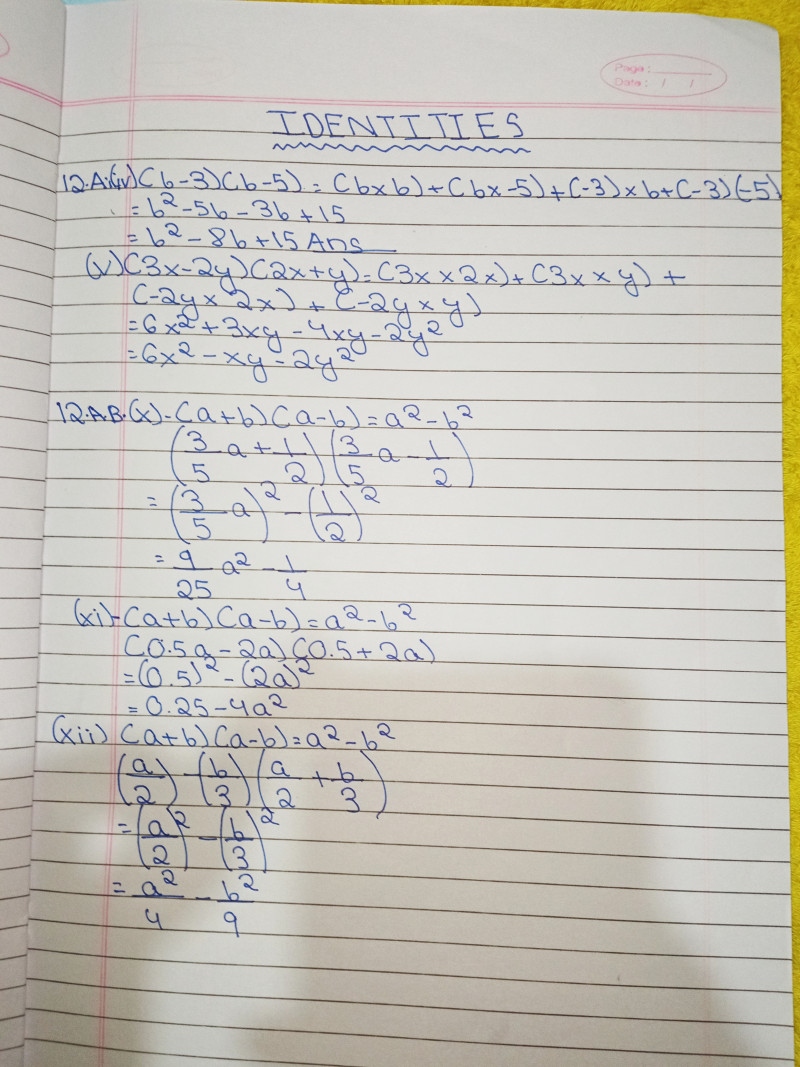 Page :
Date : / /
IDENTITIES
12.A.(iv) (b-3)(b-5) = (b×b)+(b×-5)+(-3)×b+(-3)(-5)
= b²-5b-3b+15
= b²-8b+15 Ans
(v) (3x-2y)(2x+y)=(3x×2x)+(3x×y)+
(-2y×2x)+(-2y×y)
=6x²+3xy-4xy-2y²
=6x²-xy-2y²
12.A.B.(x)-(a+b)(a-b)=a²-b²
(3/5 a + 1/2)(3/5 a - 1/2)
= (3/5 a)² - (1/2)²
= 9/25 a² - 1/4
(xi)-(a+b)(a-b)=a²-b²
(0.5a-2a)(0.5+2a)
=(0.5)²-(2a)²
=0.25-4a²
(xii) (a+b)(a-b)=a²-b²
(a/2)-(b/3)(a/2 + b/3)
=(a/2)²-(b/3)²
= a²/4 - b²/9